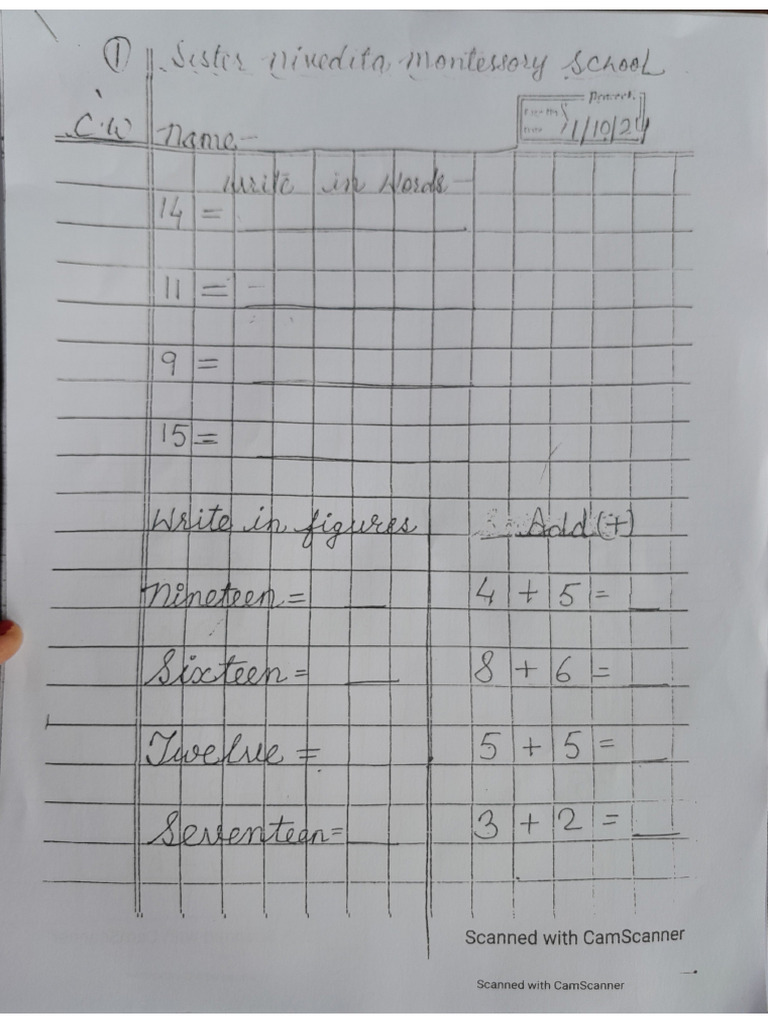 ① Sister Nivedita Montessory School
C.W Name-
1/10/24
Write in Words-
14 = ________
11 = - ________
9 = ________
15 = ________
Write in figures
Nineteen = __
Sixteen = __
Twelve =
Seventeen= __
Add (+)
4 + 5 = __
8 + 6 = __
5 + 5 = __
3 + 2 = __
Scanned with CamScanner
Scanned with CamScanner